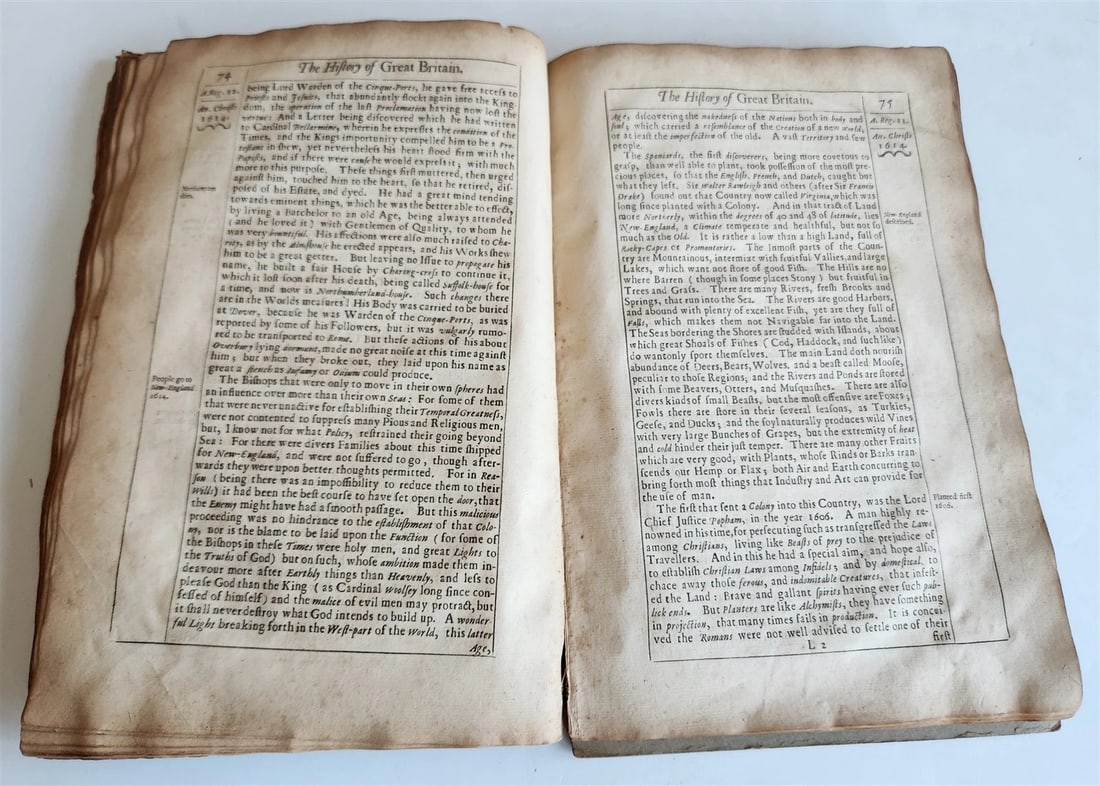 74
The History of Great Britain.
A. Reg. 22.
An. Christi
1614.
being Lord Warden of the Cinque-Ports, he gave free access to
Priests and Jesuits, that abundantly flockt again into the King-
dom, the operation of the last Proclamation having now lost the
vertue: And a Letter being discovered which he had written
to Cardinal Bellarmine, wherein he expresses the condition of the
Times, and the Kings importunity compelled him to be a Pro-
testant in shew, yet nevertheless his heart stood firm with the
Papists, and if there were cause he would express it; with much
more to this purpose. These things first muttered, then urged
against him, touched him to the heart, so that he retired, dis-
posed of his Estate, and dyed. He had a great mind tending
Northampton
dies.
towards eminent things, which he was the better able to effect,
by living a Batchelor to an old Age, being always attended
(and he loved it) with Gentlemen of Quality, to whom he
was very bountiful. His affections were also much raised to Cha-
rity, as by the Almshouse he erected appears, and his Works shew
him to be a great getter. But leaving no Issue to propogate his
name, he built a fair House by Charing-cross to continue it,
which lost soon after his death, being called Suffolk-house for
a time, and now is Northumberland-house. Such changes there
are in the Worlds measures! His Body was carried to be buried
at Dover, because he was Warden of the Cinque-Ports, as was
reported by some of his Followers, but it was vulgarly rumo-
red to be transported to Rome. But these actions of his about
Overbury lying dormant, made no great noise at this time against
him; but when they broke out, they laid upon his name as
great a stench as Infamy or Odium could produce.
The Bishops that were only to move in their own spheres had
People go to
New-England
1614.
an influence over more than their own Seas: For some of them
that were never unactive for establishing their Temporal Greatness,
were not contented to suppress many Pious and Religious men,
but, I know not for what Policy, restrained their going beyond
Sea: For there were divers Families about this time shipped
for New-England, and were not suffered to go, though after-
wards they were upon better thoughts permitted. For in Rea-
son (being there was an impossibility to reduce them to their
Wills) it had been the best course to have set open the door, that
the Enemy might have had a smooth passage. But this malicious
proceeding was no hindrance to the establishment of that Colo-
ny, nor is the blame to be laid upon the Function (for some of
the Bishops in these Times were holy men, and great Lights to
the Truths of God) but on such, whose ambition made them in-
deavour more after Earthly things than Heavenly, and less to
please God than the King (as Cardinal Woolsey long since con-
fessed of himself) and the malice of evil men may protract, but
it shall never destroy what God intends to build up. A wonder-
ful Light breaking forth in the West-part of the World, this latter
Age,
The History of Great Britain.
75
A. Reg. 22.
An. Christi
1614.
Age, discovering the nakedness of the Nations both in body and
soul; which carried a resemblance of the Creation of a new world,
or at least the imperfection of the old. A vast Territory and few
people.
The Spaniards, the first discoverers, being more covetous to
grasp, than well able to plant, took possession of the most pre-
cious places, so that the English, French, and Dutch, caught but
what they left. Sir Walter Rawleigh and others (after Sir Francis
Drake) found out that Country now called Virginia, which was
long since planted with a Colony. And in that tract of Land
more Northerly, within the degrees of 40 and 48 of latitude, lies
New-England
described.
New-England, a Climate temperate and healthful, but not so
much as the Old. It is rather a low than a high Land, full of
Rocky-Capes or Promontories. The Inmost parts of the Coun-
try are Mountainous, intermixt with fruitful Vallies, and large
Lakes, which want not store of good Fish. The Hills are no
where Barren (though in some places Stony) but fruitful in
Trees and Grass. There are many Rivers, fresh Brooks and
Springs, that run into the Sea. The Rivers are good Harbors,
and abound with plenty of excellent Fish, yet are they full of
Falls, which makes them not Navigable far into the Land.
The Seas bordering the Shores are studded with Islands, about
which great Shoals of Fishes (Cod, Haddock, and such like)
do wantonly sport themselves. The main Land doth nourish
abundance of Deers, Bears, Wolves, and a beast called Moose,
peculiar to those Regions; and the Rivers and Ponds are stored
with some Beavers, Otters, and Musquashes. There are also
divers kinds of small Beasts, but the most offensive are Foxes;
Fowls there are store in their several seasons, as Turkies,
Geese, and Ducks; and the soyl naturally produces wild Vines
with very large Bunches of Grapes, but the extremity of heat
and cold hinder their just temper. There are many other Fruits
which are very good, with Plants, whose Rinds or Barks tran-
scends our Hemp or Flax; both Air and Earth concurring to
bring forth most things that Industry and Art can provide for
the use of man.
The first that sent a Colony into this Country, was the Lord
Planted first
1606.
Chief Justice Popham, in the year 1606. A man highly re-
nowned in his time, for persecuting such as transgressed the Laws
among Christians, living like Beasts of prey to the prejudice of
Travellers. And in this he had a special aim, and hope also,
to establish Christian Laws among Infidels; and by domestical, to
chace away those ferous, and indomitable Creatures, that infest-
ed the Land: Brave and gallant spirits having ever such pub-
lick ends. But Planters are like Alchymists, they have something
in projection, that many times fails in production. It is concei-
ved the Romans were not well advised to settle one of their
L 2
first